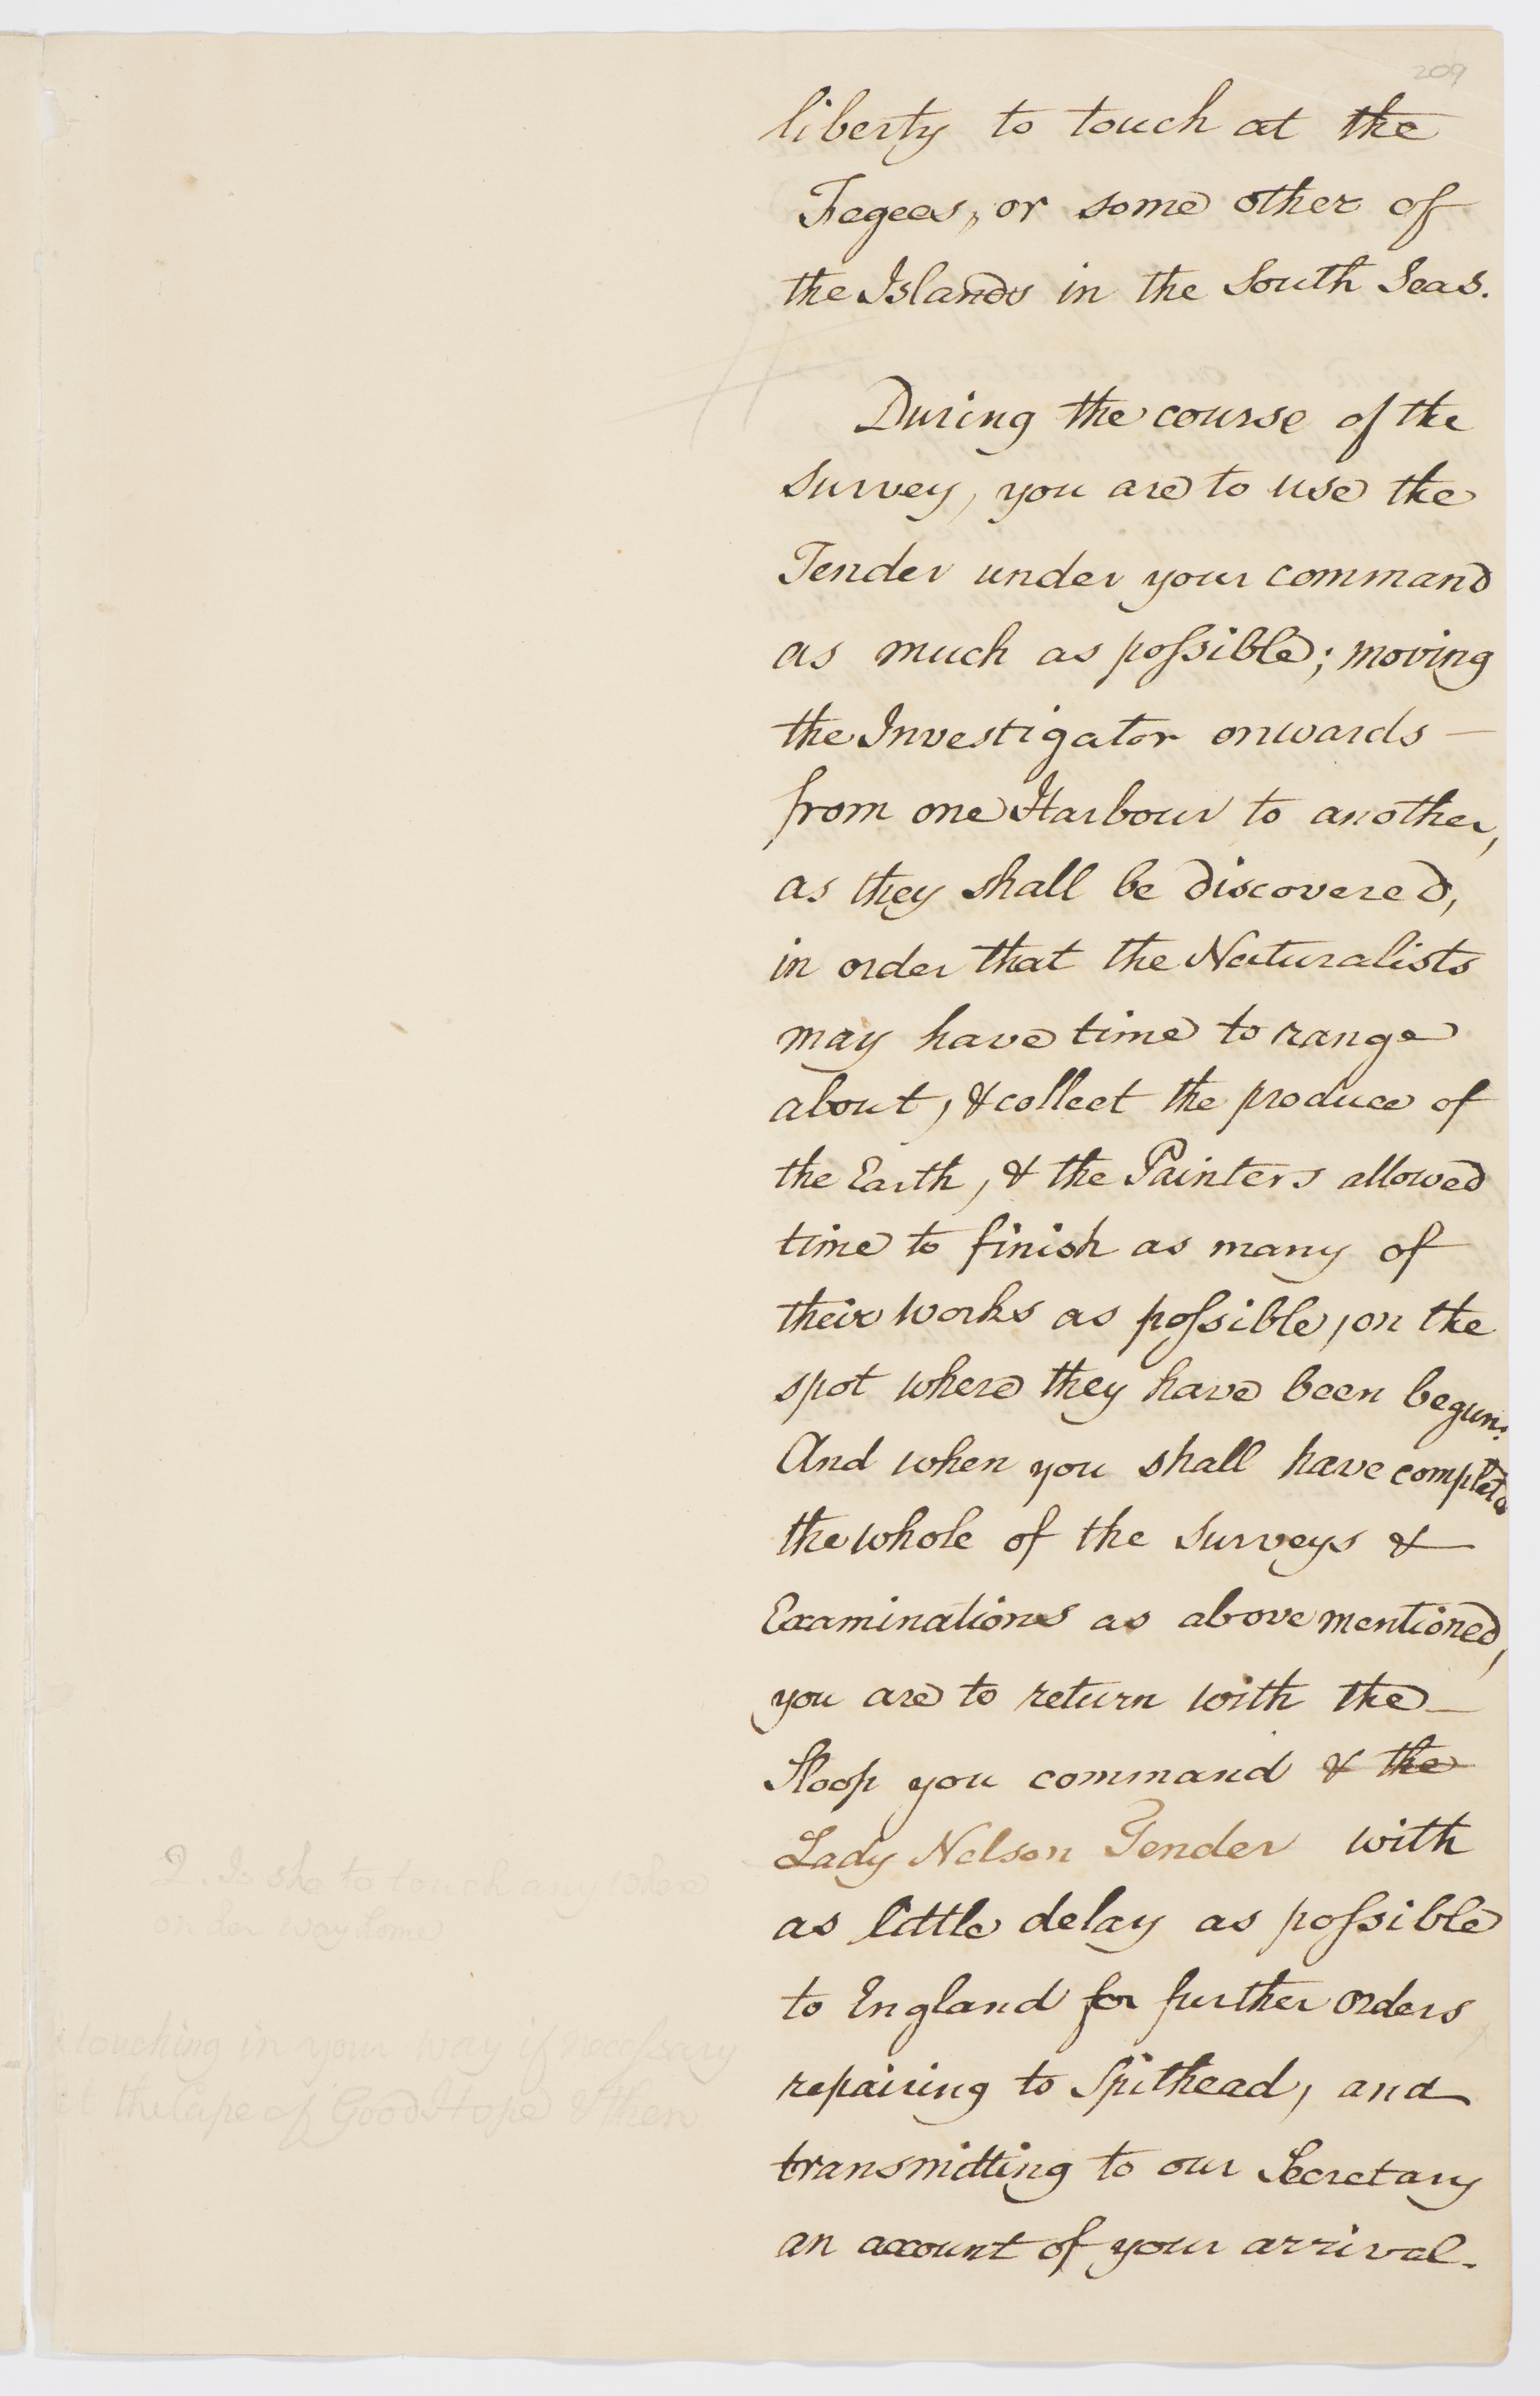 209
liberty to touch at the
Fegees, or some other of
the Islands in the South Seas.
During the course of the
Survey, you are to use the
Tender under your command
as much as poſsible; moving
the Investigator onwards —
from one Harbour to another,
as they shall be discovered,
in order that the Naturalists
may have time to range
about, & collect the produce of
the Earth, & the Painters allowed
time to finish as many of
their works as poſsible, on the
spot where they have been begun:
And when you shall have completed
the whole of the Surveys &
Examinations as above mentioned,
you are to return with the —
Sloop you command & the
Lady Nelson Tender with
as little delay as poſsible
to England for further orders
repairing to Spithead, and
transmitting to our Secretary
an account of your arrival.
Q. Is she to touch any where
on her way home
touching in your way if neceſsary
at the Cape of Good Hope & then